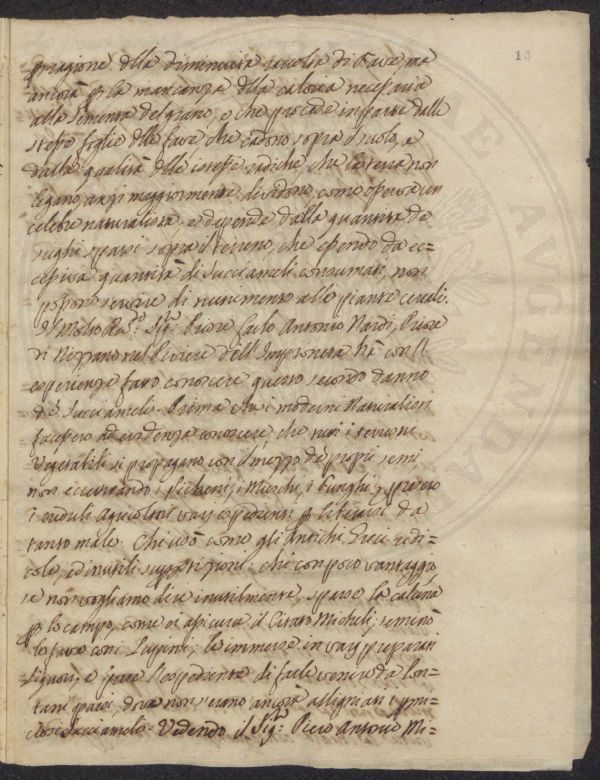 15
ragione della diminuita raccolta di Fave, ma
ancora p la mancanza della caloria necessaria
alla sementa del grano, e che procede in parte dalle
stesse foglie delle fave che cadono sopra il suolo, e
dalla qualità delle istesse radiche, che la terra non
legano, anzi maggiormente dividono, come osserva un
celebre naturalista, e depende dalla quantità de
sughi sparsi sopra il terreno, che essendo da ec=
cessiva quantità di succiameli consumati, non
possono servire di nutrimento alle piante cereali.
Il Molto Revᵈᵒ Sigʳ Priore Carlo Antonio Nardi, Priore
di Nozzano nel Piviere dell'Impruneta hà con l'
esperienza fatto conoscere questo secondo danno
de Succiameli. Prima che i moderni Naturalisti
facessero ad evidenza conoscere, che tutti i terrestri
Vegetabili si propagano con il mezzo de proprj semi
non eccettuando i Licheni, i Muschi, i Funghi,
i creduli Agricoltori varj espedienti p liberarsi da
tanto male. Chi usò come gli Antichi Greci ridi=
cole, ed inutili superstizioni: chi con poco vantaggio,
se non vogliamo dire inutilmente, sparse la calcina
p lo campo, come ci assicura il Citato Micheli; seminò
le fave con i Lupini; le immerse in varj preparati
liquori; e prese l'espediente di farle venire da lon=
tani paesi, dove non s'erano ancora allignati i
Succiameli. Vedendo il Sigʳ Piero Antonio Mi=